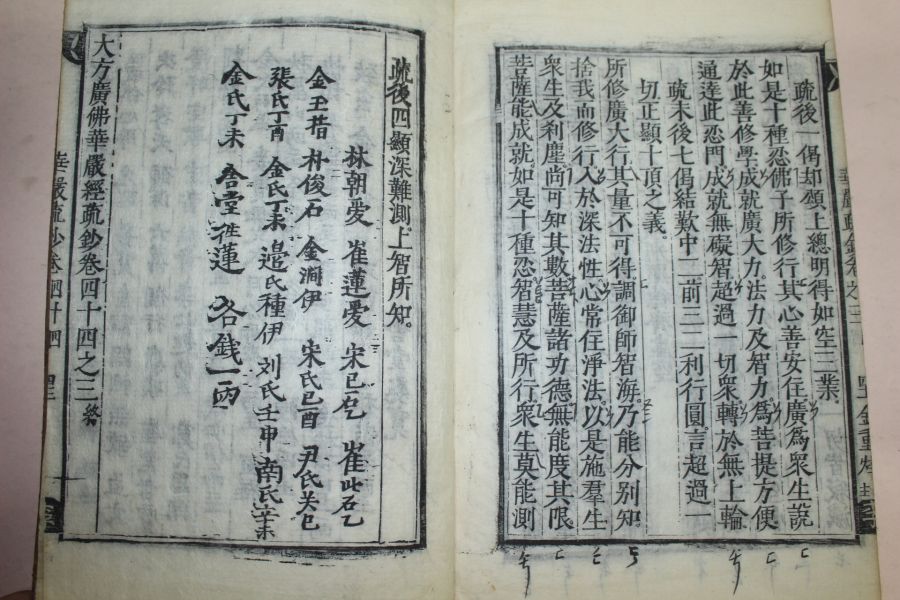 疏後一偈却頌上總明得如空三業。
如是十種忍佛子所修行其心善安住廣為衆生說
於此善修學成就廣大力。法力及智力。為菩提方便
通達此忍門成就無礙智超過一切衆轉於無上輪
疏末後七偈結歎中二。前三二利行圓。言超過一
切正顯十頂之義。
所修廣大行其量不可得。調御師智海。乃能分別知。
捨我而修行入於深法性。心常住淨法。以是施羣生
衆生及刹塵尚可知其數。菩薩諸功德無能度其限
菩薩能成就。如是十種忍。智慧及所行衆生莫能測
疏後四顯深難測。上智所知。
林朝愛 崔蓮愛 宋己乭 崔此石乙
朴俊石 金澗伊 宋氏己酉
張氏丁酉 金氏丁未 邉氏種伊 刘氏壬申 南氏辛未
金氏丁未 蓮 各錢一兩
大方廣佛華嚴經疏鈔卷四十四之三
華嚴疏鈔卷四十四